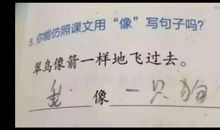 3.你能仿照课文用“像”写句子吗?
翠鸟像箭一样地飞过去。
我 像 一只狗